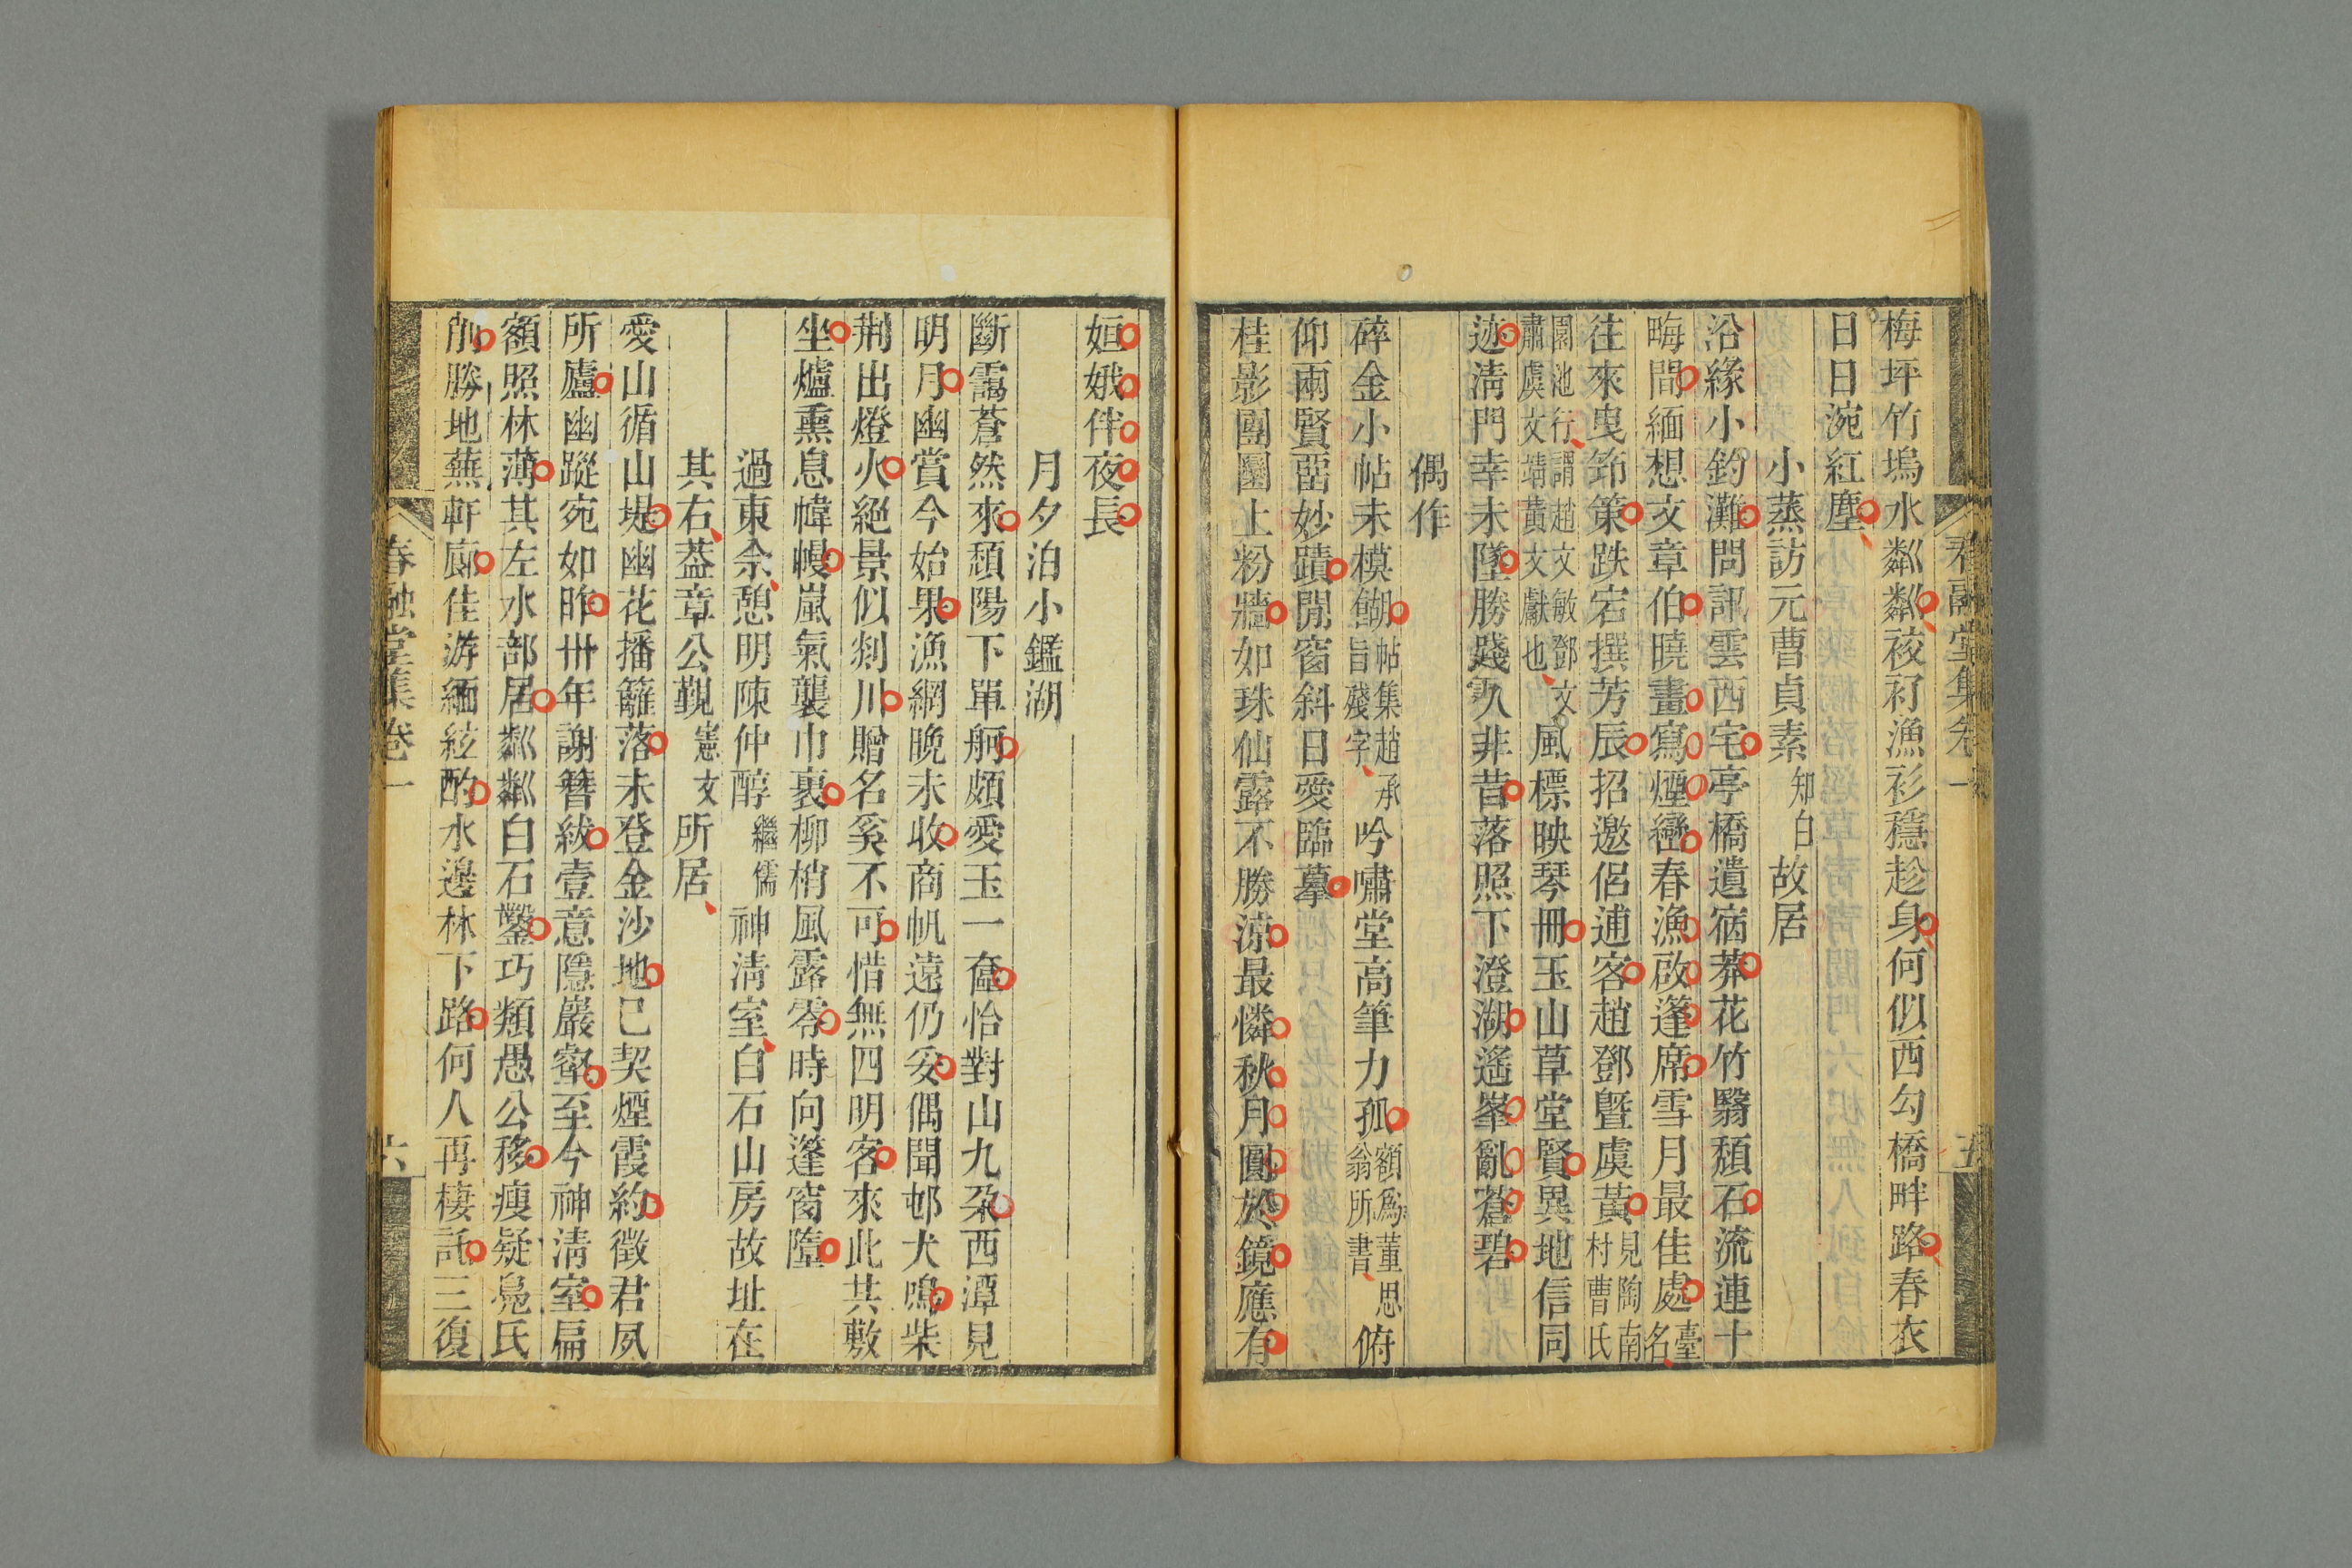 春融堂集卷一
五
梅坪竹塢水粼粼祓禊漁衫穩趁身何似西勾橋畔路春衣
日日涴紅塵
小蒸訪元曹貞素知白故居
沿緣小釣灘問訊雲西宅亭橋遺宿莽花竹翳頹石流連十
畮間緬想文章伯曉畫寫煙巒春漁啟蓬席雪月最佳處臺名
往來曳筇策跌宕撰芳辰招邀侶逋客趙鄧曁虞黃見陶南村曹氏
園池行謂趙文敏鄧文肅虞文靖黃文獻也風標映琴冊玉山草堂賢異地信同
迹淸門幸未墜勝踐久非昔落照下澄湖遙峯亂蒼碧
偶作
碎金小帖未模餬帖集趙承旨殘字吟嘯堂高筆力孤額爲董思翁所書俯
仰兩賢畱妙蹟閒窗斜日愛臨摹
桂影團圞上粉牆如珠仙露不勝涼最憐秋月圓於鏡應有
姮娥伴夜長
月夕泊小鑑湖
斷靄蒼然來頹陽下單舸頗愛玉一奩怡對山九朶西潭見
明月幽賞今始果漁網晚未收商帆遠仍妥偶聞邨犬鳴柴
荆出燈火絕景似剡川贈名奚不可惜無四明客來此共敷
坐爐熏息幃幔嵐氣襲巾裹柳梢風露零時向蓬窗墮
過東佘憩明陳仲醇繼儒神淸室白石山房故址在
其右葢章公覲憲文所居
愛山循山堤幽花播籬落未登金沙地已契煙霞約徵君夙
所廬幽蹤宛如昨卅年謝簪紱壹意隱巖壑至今神淸室扁
額照林薄其左水部居粼粼白石鑿巧類愚公移瘦疑鳧氏
削勝地蕪軒廊佳游緬絃酌水邊林下路何人再棲託三復
春融堂集卷一
六